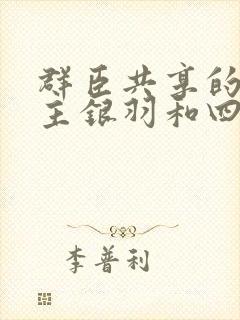 群臣共享的
主银羽和四
李普利